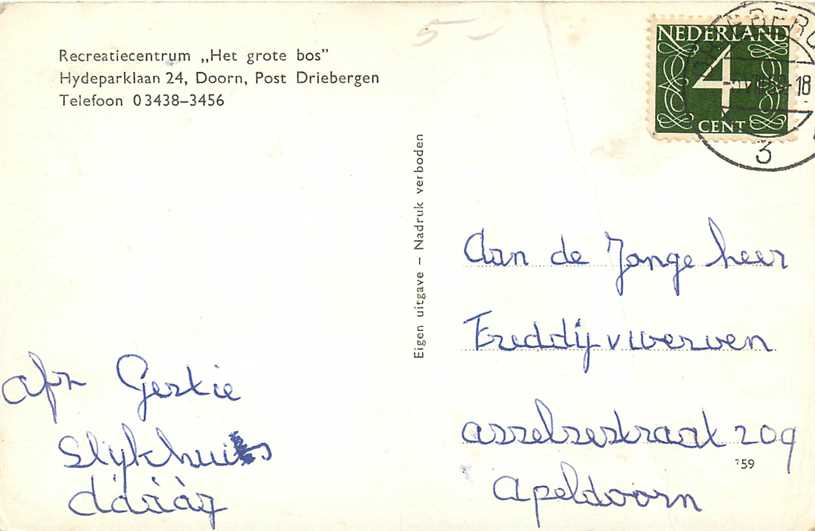 5-
Recreatiecentrum „Het grote bos"
Hydeparklaan 24, Doorn, Post Driebergen
Telefoon 03438-3456
NEDERLAND
4
CENT
18
3
Eigen uitgave – Nadruk verboden
Aan de Jonge heer
Freddij v werven
asselsestraat 209
Apeldoorn
afz Gertie
Slijkhuis
dááág
759